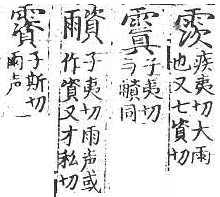 疾夷切大雨
也又七資切
子夷切
与同
子夷切雨声或
作資又才私切
子斯切
雨声